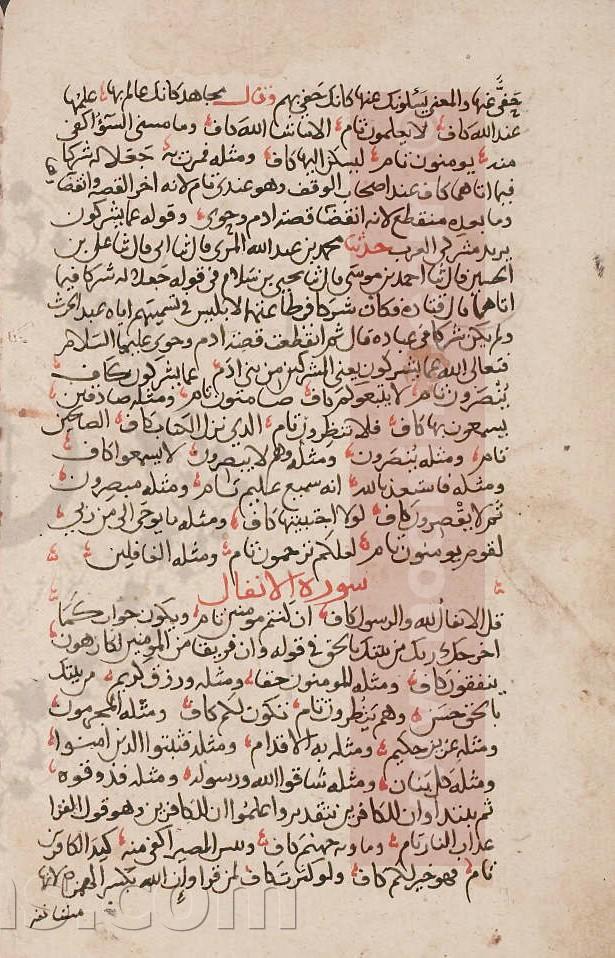 حفيٌّ عنها والمعنى يسئلونك عنها كانك حفي بهم وقال مجاهد كانك عالم بها علمها
عند الله كاف لا يعلمون تام الا ما شا الله كاف وما مسني السوء اكفى
منه يومنون تام ليسكن اليها كاف ومثله فمرت به جعلا له شركا
فيما اتاهما كاف عند اصحاب الوقف وهو عندي تام لانه اخر القصه وانقضا
وما بعده منقطع لانه انقضا قصة ادم وحوى وقوله عما يشركون
يريد مشركي العرب حدثنا محمد بن عبد الله المري قال ثنا ابي قال ثنا علي بن
الحسين قال ثنا احمد بن موسى قال ثنا يحيى بن سلام في قوله جعلا له شركا فيما
اتاهما قال قتاده فكان شركا في طاعتهما لابليس في تسميتهم اياه عبد الحرث
ولم يكن شركا في عباده قال ثم انقطعت قصة ادم وحوى عليهما السلام
فتعالى الله عما يشركون يعني المشركين من بني ادم عما يشركون كاف
يُنْصَرون تام لا يتبعوكم كاف صامتون تام ومثله صادقين
يسمعون بها كاف فلا تنظرون تام الذي نزل الكتاب كاف الصالحين
تام ومثله يُنصَرون ومثله وهم لا يبصرون لا يسمعوا كاف
ومثله فاستعذ بالله انه سميع عليم تام ومثله مبصرون
ثم لا يقْصِرون كاف لولا اجتبيتها كاف ومثله ما يوحى الي من ربي
لقوم يومنون تام لعلكم ترحمون تام ومثله الغافلين
سورة الانفال
قل الانفال لله والرسول كاف ان كنتم مومنين تام ويكون جواب كما
اخرجك ربك من بيتك بالحق في قوله وان فريقا من المومنين لكارهون
ينفقون كاف ومثله المومنون حقا ومثله ورزق كريم من بيتك
بالحق حسن وهم ينظرون تام تكون لكم كاف ومثله المجرمون
ومثله عزيز حكيم ومثله به الاقدام ومثله فثبتوا الذين امنوا
ومثله كل بنان ومثله شاقوا الله ورسوله ومثله فذوقوه
ثم يبتدا وان للكافرين بتقدير واعلموا ان للكافرين وهو قول الفرا
عذاب النار تام وماويه جهنم كاف وبيس المصير اكفى منه كيد الكافرين
تام فهو خير لكم كاف ولو كثرت كاف لمن قرا وإن الله بكسر الهمزه لانها